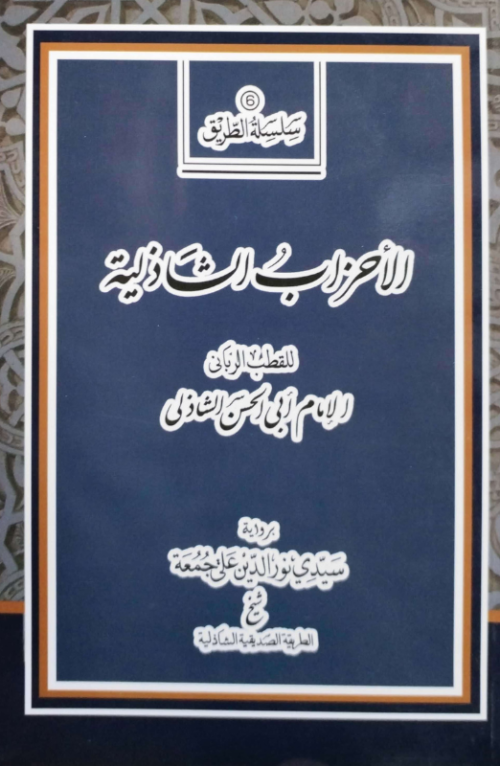 6
سِلْسِلَةُ الطَّرِيْق
الأحزابُ الشاذلية
للقطب الربانى
الإمام أبى الحسن الشاذلى
برواية
سَيِّدِي نور الدِّين عَلى جُمُعَة
شيخ
الطريقة الصديقية الشاذلية